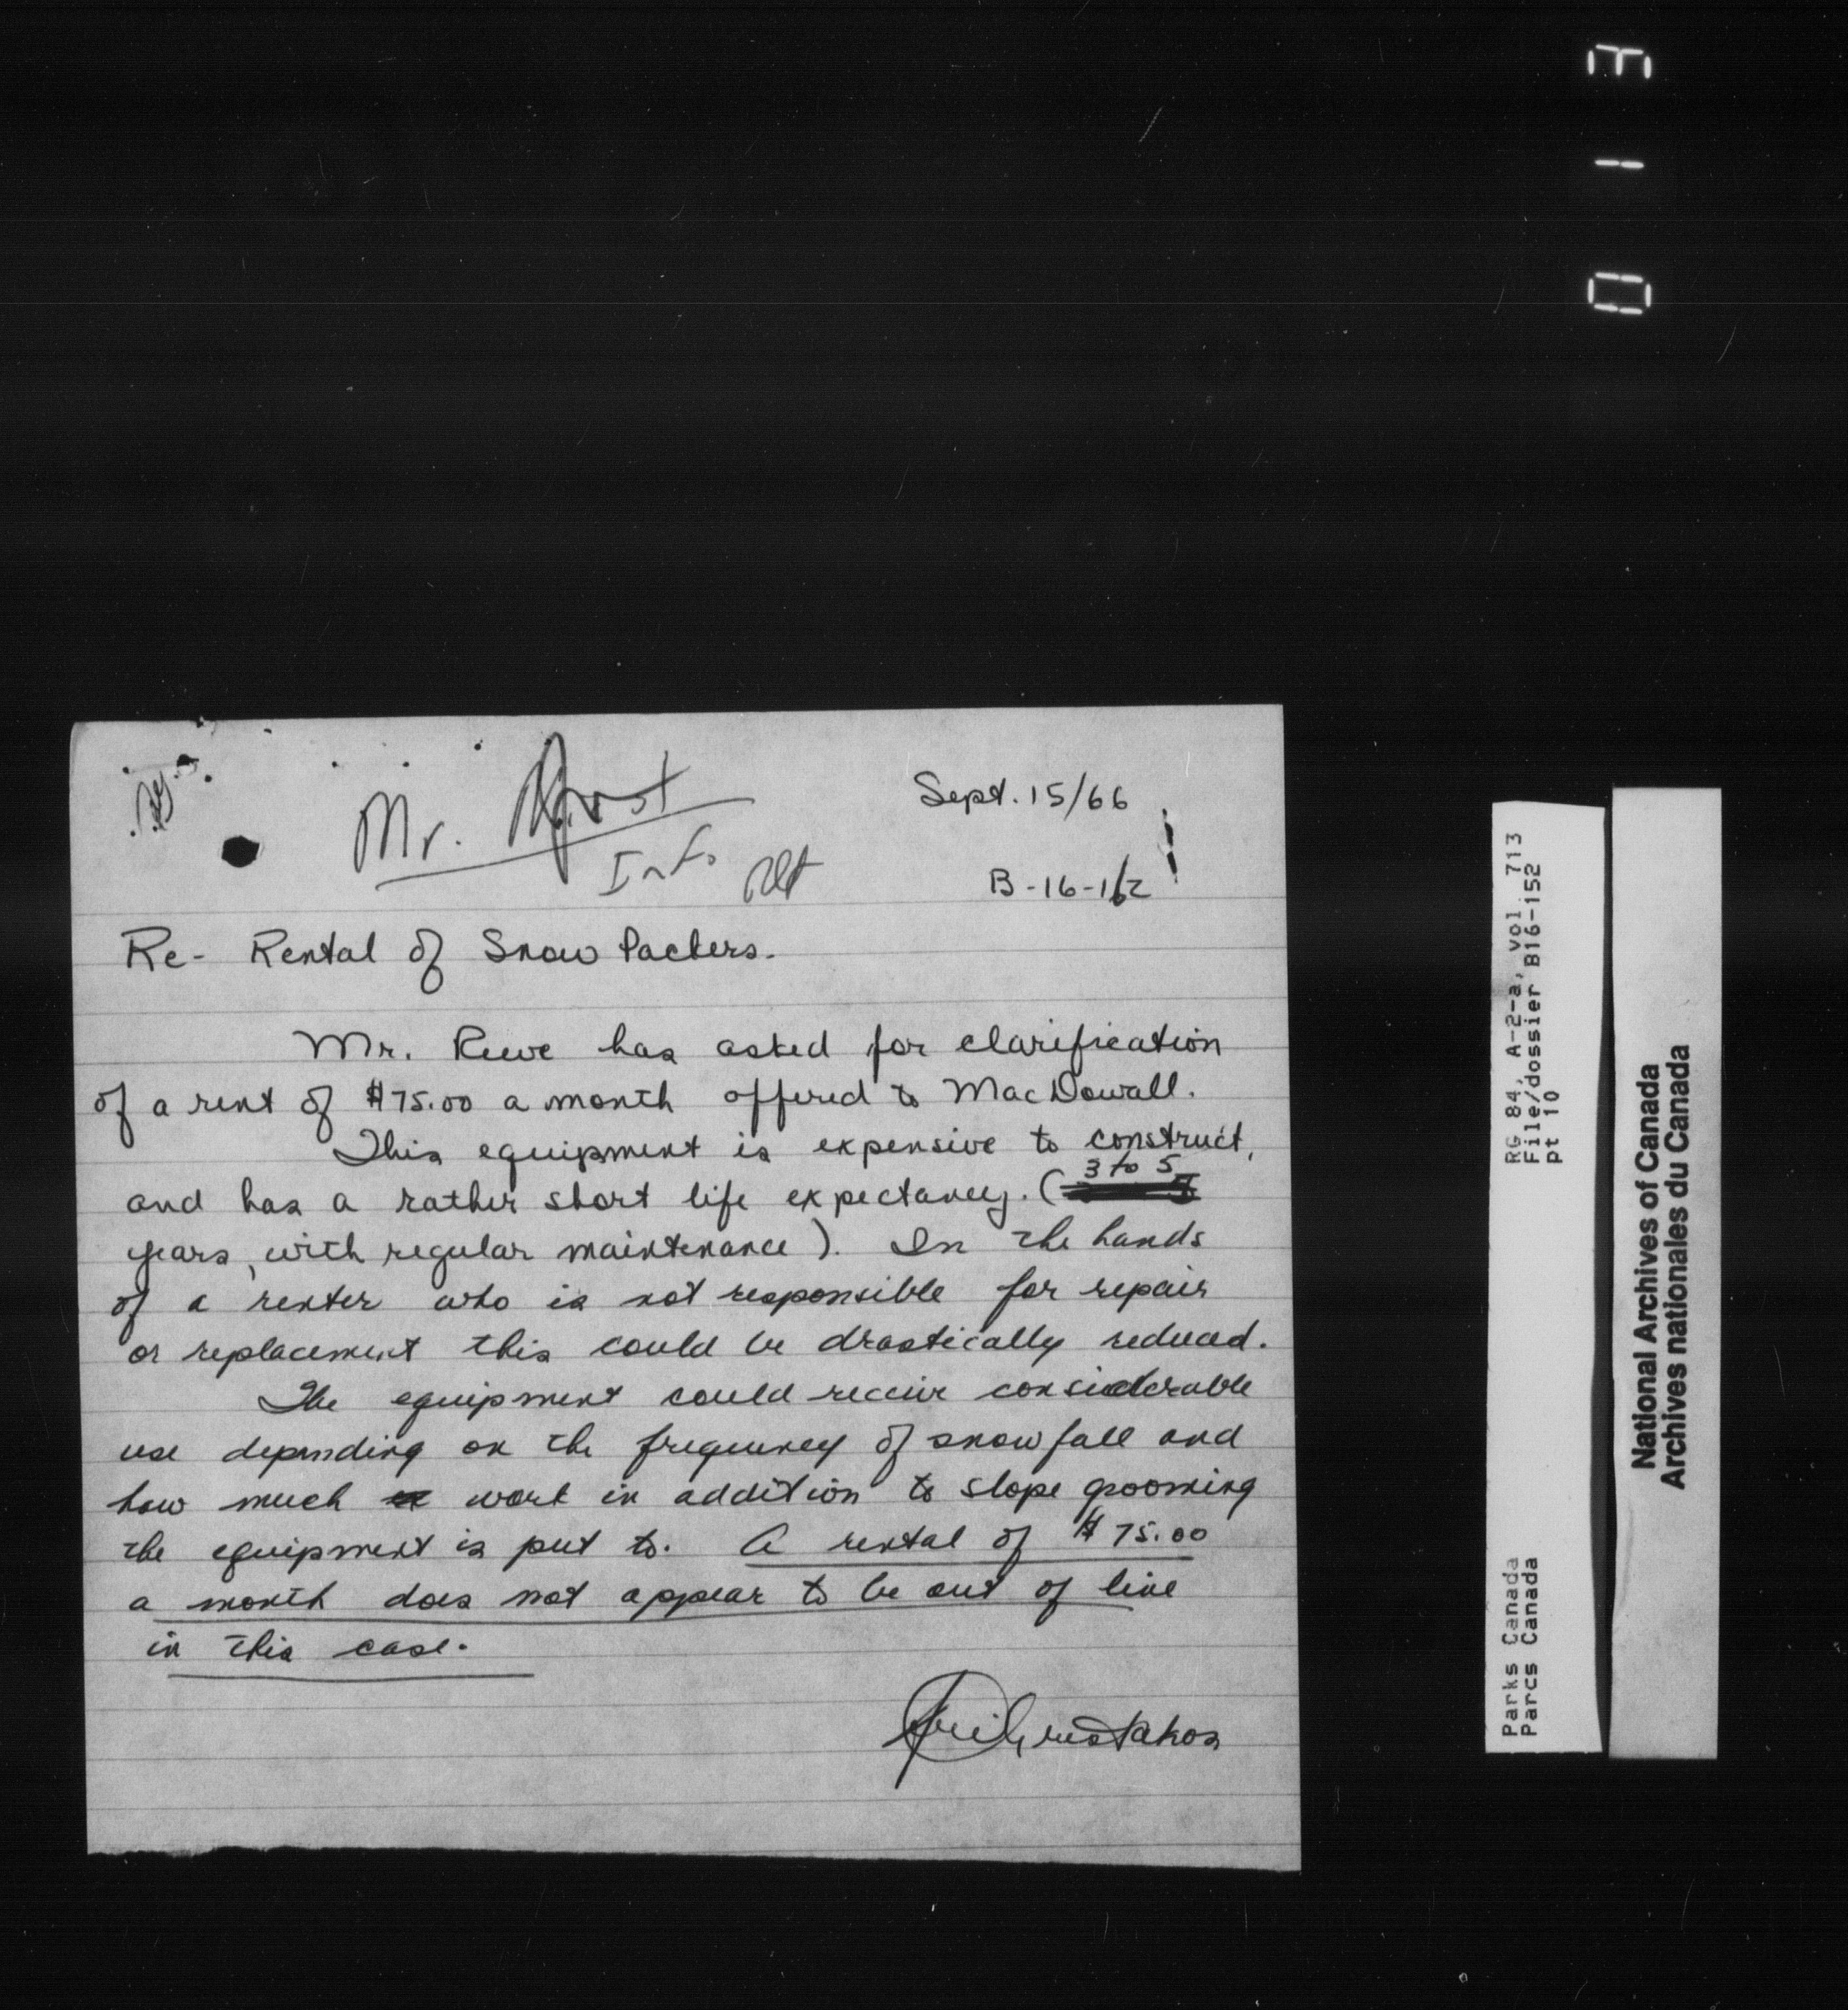 Mr.
Sept. 15/66
Inf.
B-16-162
Re- Rental of Snow Packers.
Mr. Reeve has asked for clarification
of a rent of $75.00 a month offered to MacDowall.
This equipment is expensive to construct,
and has a rather short life expectancy. (3 to 5
years, with regular maintenance). In the hands
of a renter who is not responsible for repair
or replacement this could be drastically reduced.
The equipment could receive considerable
use depending on the frequency of snowfall and
how much work in addition to slope grooming
the equipment is put to. A rental of $75.00
a month does not appear to be out of line
in this case.
RG 84, A-2-a, vol. 713
File/dossier B16-152
pt 10
Parks Canada
Parcs Canada
National Archives of Canada
Archives nationales du Canada
0 1 3